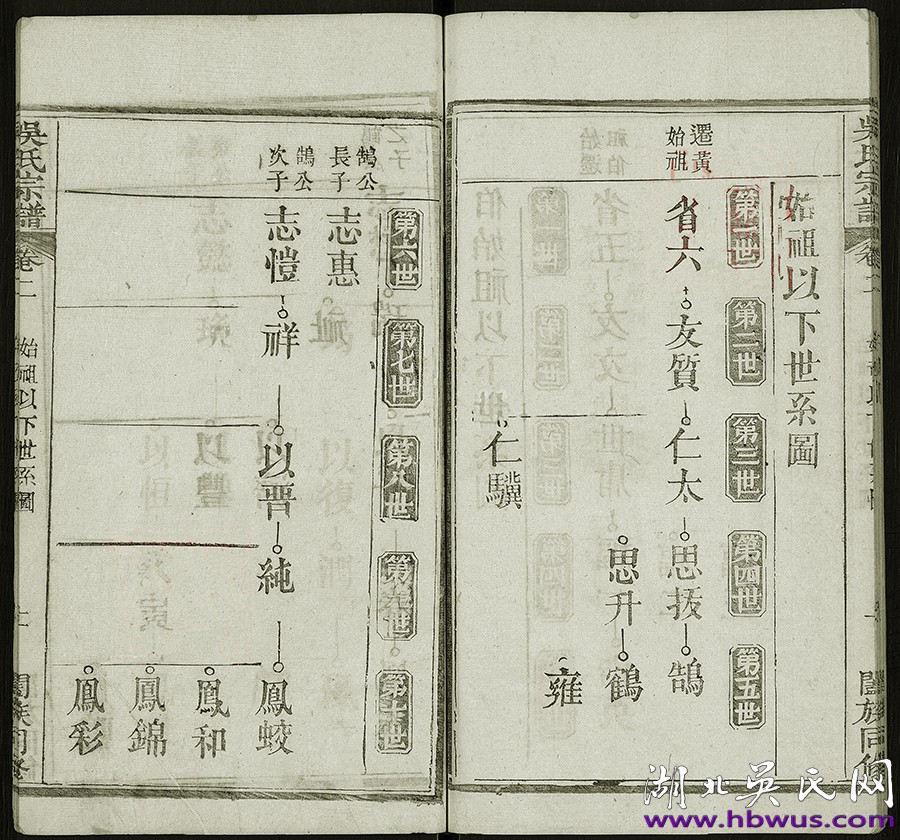 吳氏宗譜
卷二
始祖以下世系圖
闔族同修
始祖以下世系圖
第一世
第二世
第三世
第四世
第五世
遷黃
始祖
省六
友質
仁太
思拔
鵠
思升
鶴
雍
仁驥
第六世
第七世
第八世
第九世
第十世
鵠公
長子
志惠
鵠公
次子
志愷
祥
以晋
純
鳳蛟
鳳和
鳳錦
鳳彩
吳氏宗譜
卷二
始祖以下世系圖
闔族同修
湖北吴氏网
www.hbwus.com